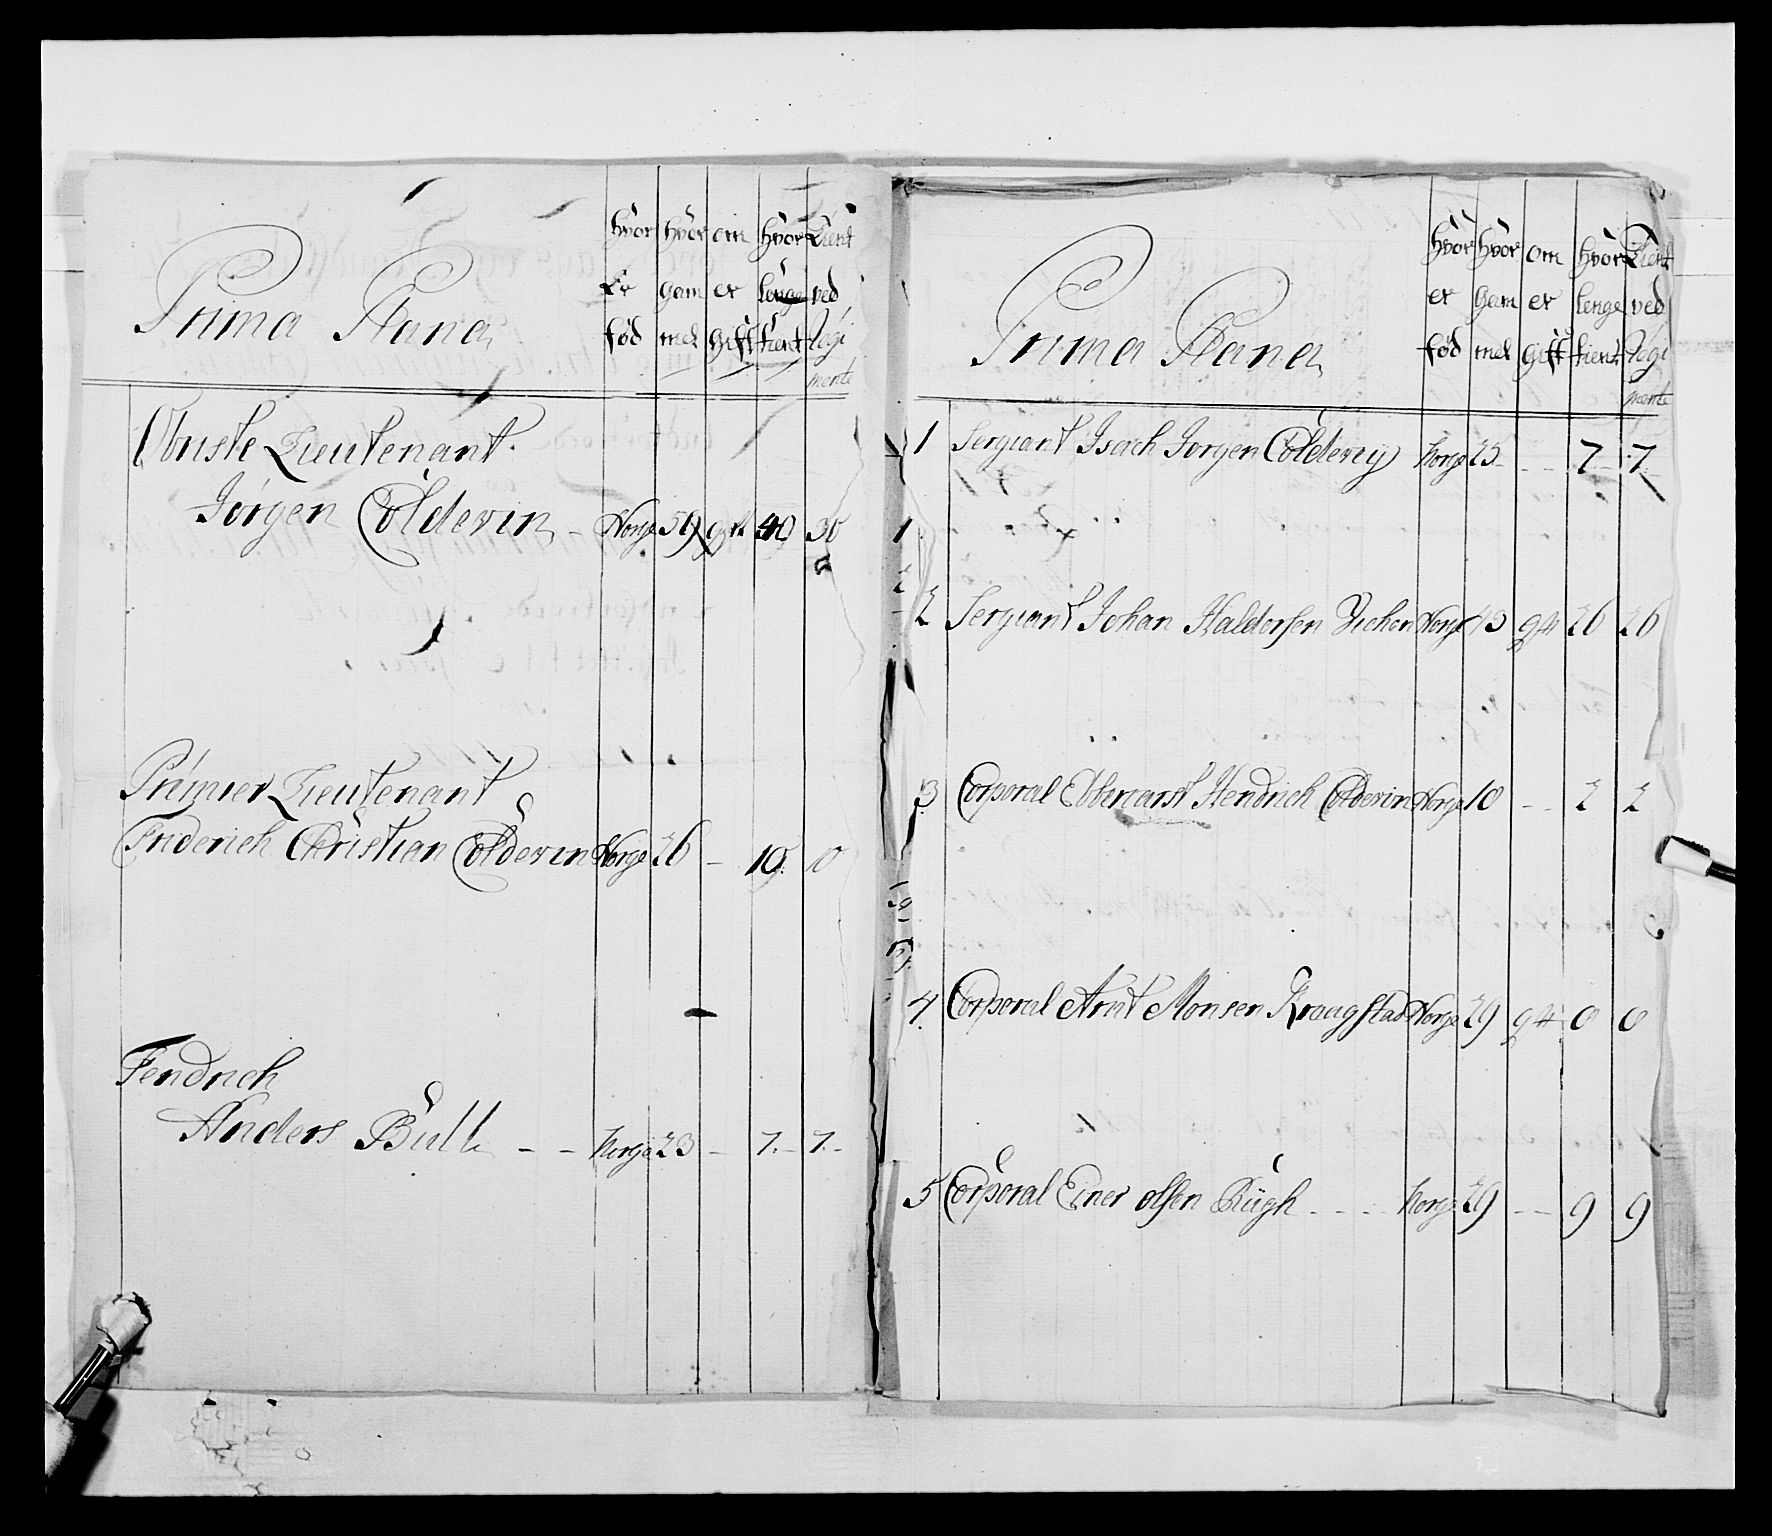 Prima Plana,
hvor hvor om hvor Tient
Er gam er lenge ved
fød mel gift tient Regi
mente
Obriste Lieutenant.
Jørgen Coldevin - Norge 59 gift 40 30
Premier Lieutenant
Friderich Christian Coldevin Norge 26 - 10. 10
Fendrich
Anders Bull - - Norge 23 - 7. - 7. -
Prima Plana,
hvor hvor om hvor Tient
er gam er lenge ved
fød mel gift tient Regi
mente
1 Sergiant Isach Jørgen Coldevin Norge 25 - - 7 7
2 Sergiant Johan Haldorsen Norge 43 gift 26 26
3 Corporal Hendrich Coldevin Norge 10 - - 2 2
4. Corporal Arnt Monsen Kraagstad Norge 29 gift 0 0
5 Corporal Einer Olsen Norge 29 - - 9 9